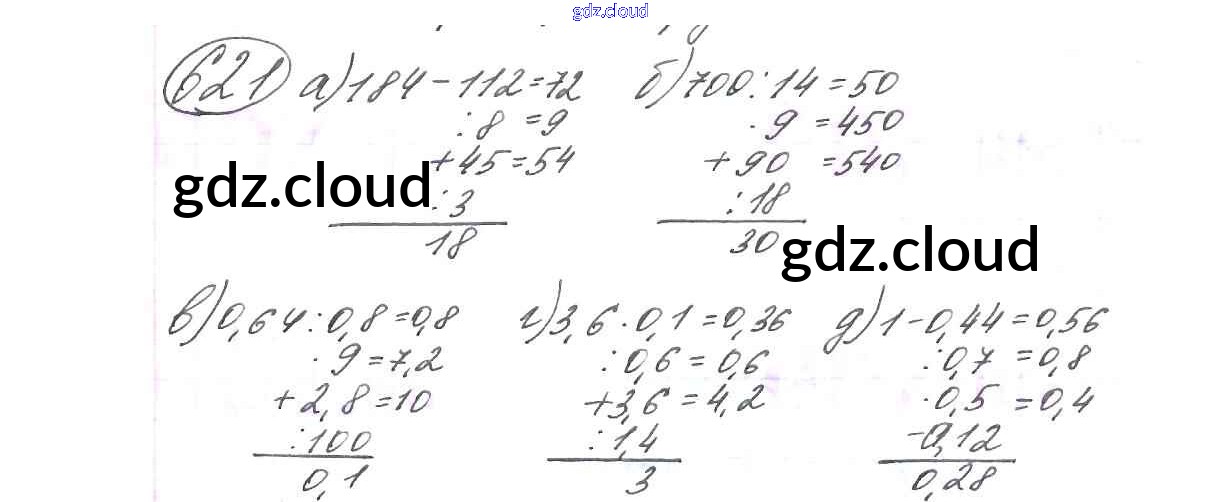 gdz.cloud
621 а) 184 - 112 = 72 б) 700 : 14 = 50
: 8 = 9 · 9 = 450
+ 45 = 54 + 90 = 540
gdz.cloud : 3 : 18
18 30 gdz.cloud
в) 0,64 : 0,8 = 0,8 г) 3,6 · 0,1 = 0,36 д) 1 - 0,44 = 0,56
· 9 = 7,2 : 0,6 = 0,6 : 0,7 = 0,8
+ 2,8 = 10 + 3,6 = 4,2 · 0,5 = 0,4
: 100 : 1,4 - 0,12
0,1 3 0,28